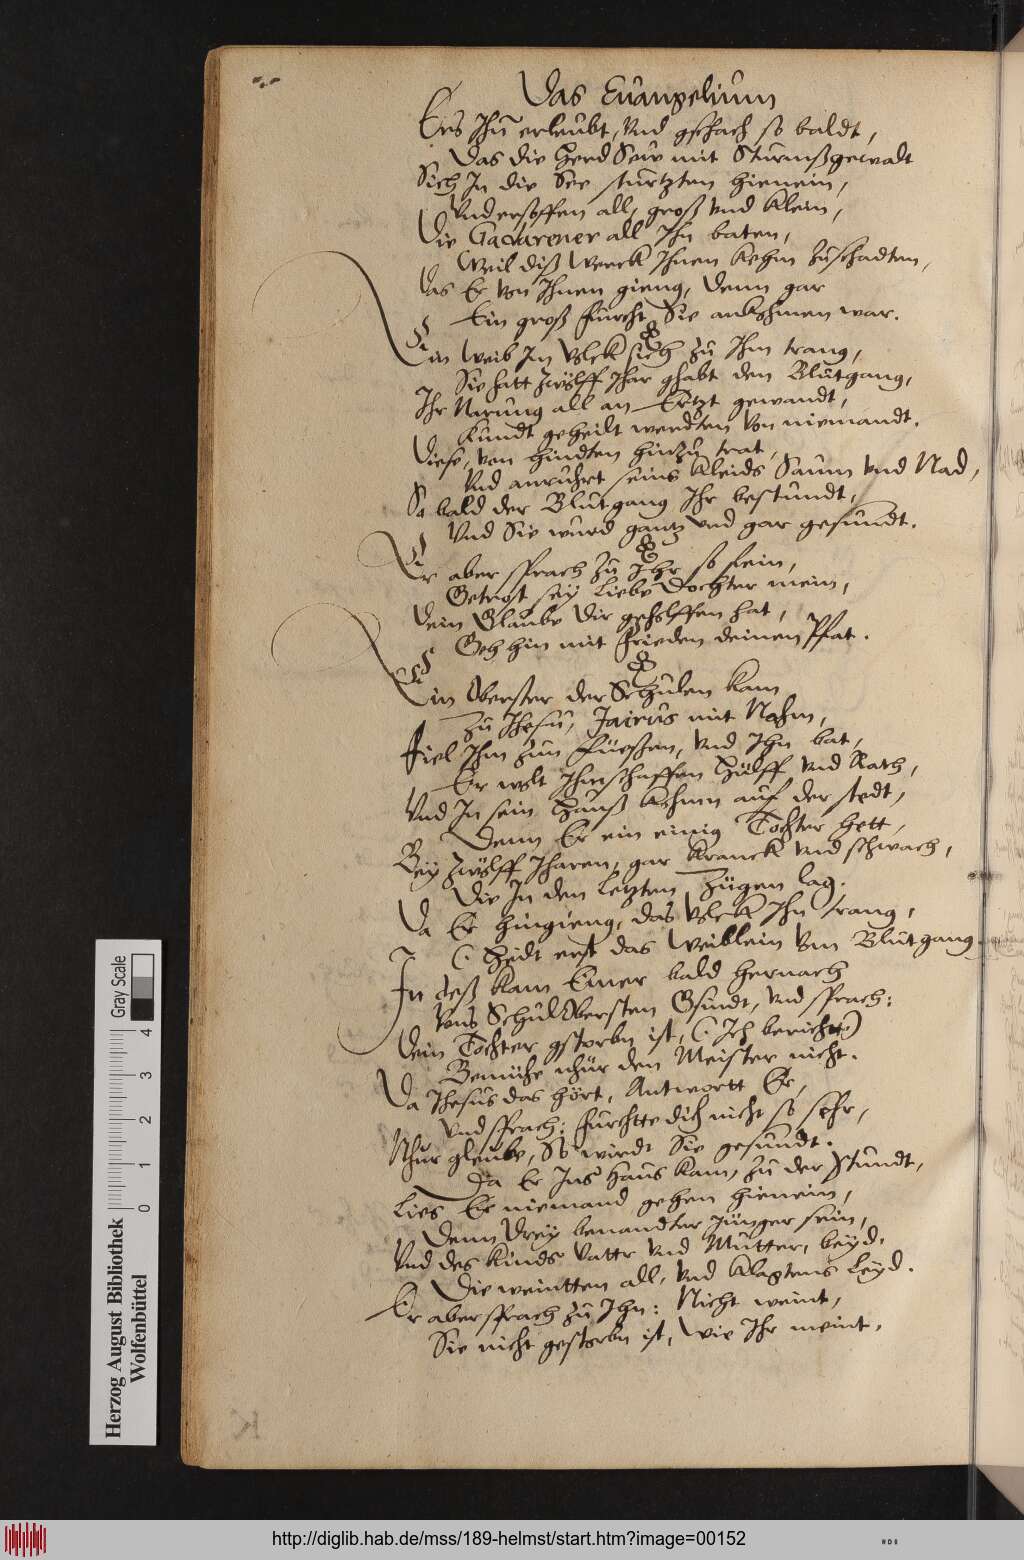 Das Euangelium
Ers Ihn erleubt, Vnd gschach so baldt,
Das die Herd Sew mit Sturmßgewalt
Sich In die See sturtzten hienein,
Vnd ersoffen all, groß vnd klein,
Die Gadarener all Ihn baten,
Weil diß Werck Ihnen kehm zuschadten,
Das Er von Ihnen gieng, denn gar
Ein groß furcht Sie ankohmen war.
Ein Weib Im Volck sich zu Ihm trang,
Sie hatt zwölff Jhar ghabt den Blutgang,
Ihr Narung all an Ertzt gewandt,
Kundt geheilt werdten von niemandt.
Diese, von hindten hinzu trat,
Vnd anruhrt seins Kleids Saum vnd Nad,
So bald der Blutgang Ihr bestundt,
Vnd Sie wurd gantz vnd gar gesundt.
Er aber sprach zu Ihr so fein,
Getrost sey liebe Dochter mein,
Dein Glaube dir geholffen hat,
Geh hin mit frieden deinen Pfat.
Ein Oberster der Schulen kam
Zu Jhesu, Jairus mit Nahm,
Fiel Ihm zun Füeßen, vnd Ihn bat,
Er wolt Ihm schaffen Hülff vnd Rath,
Vnd In sein Hauß kohmen auf der stedt,
Denn Er ein einig Tochter hett,
Bey zwölff Jharen, gar kranck vnd schwach,
Die In den letzten Zügen lag.
Da Er hingieng, das Volck Ihn trang,
(: Heilt erst das Weiblein vom Blutgang.
In deß kam Einer bald hernach
Vons SchulObersten Gsindt, vnd sprach:
Dein Tochter gstorbn ist, (: Ich berichte)
Bemühe nhür den Meister nicht.
Da Jhesus das hört, Antwortt Er,
Vnd sprach: furchtte dich nicht so sehr,
Nhur gleube, So wirdt Sie gesundt.
Da Er Ins Haus kam, zu der Stundt,
Lies Er niemand gehen hienein,
Denn Drey benandter Jünger sein,
Vnd des Kinds Vattr vnd Mutter, beyd,
Die weintten all, vnd klagtens Leyd.
Er aber sprach zu Ihn: Nicht weint,
Sie nicht gestorbn ist, wie Ihr meint,
Herzog August Bibliothek
Wolfenbüttel
Gray Scale
0 1 2 3 4
http://diglib.hab.de/mss/189-helmst/start.htm?image=00152